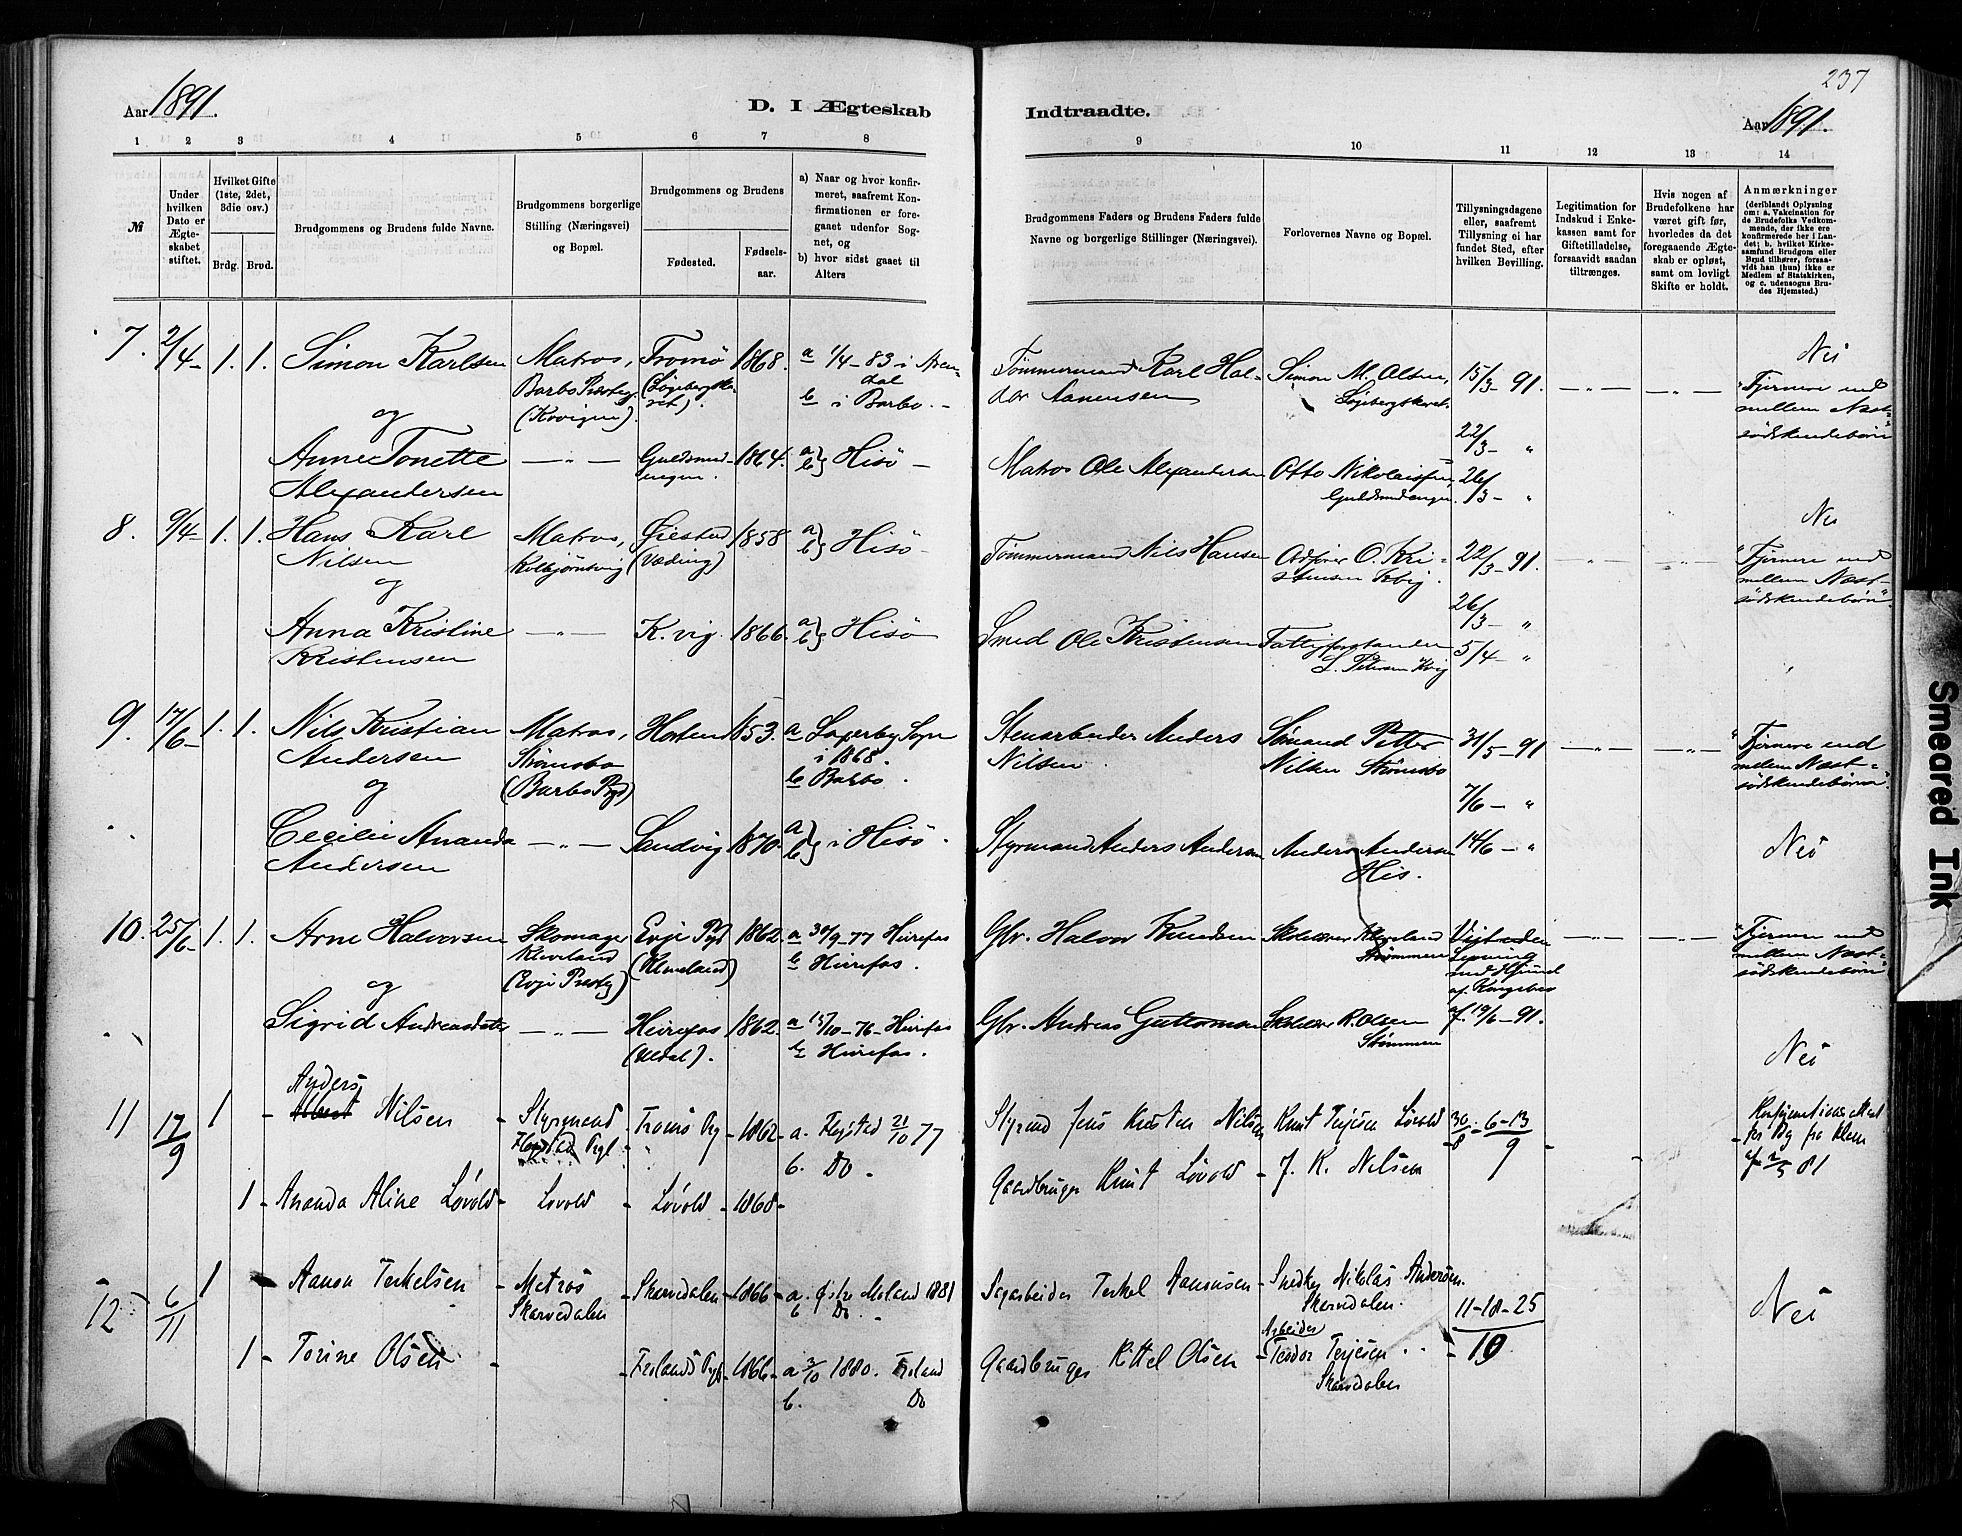 237
Aar 1891.
D. I Ægteskab Indtraadte.
Aar 1891.
1 2 3 4 5 6 7 8 9 10 11 12 13 14
№
Under hvilken Dato er Ægteskabet stiftet.
Hvilket Gifte (1ste, 2det, 3die osv.)
Brdg. Brud.
Brudgommens og Brudens fulde Navne.
Brudgommens borgerlige Stilling (Næringsvei) og Bopæl.
Brudgommens og Brudens
Fødested.
Fødselsaar.
a) Naar og hvor konfirmeret, saafremt Konfirmationen er foregaaet udenfor Sognet, og
b) hvor sidst gaaet til Alters
Brudgommens Faders og Brudens Faders fulde Navne og borgerlige Stillinger (Næringsvei).
Forlovernes Navne og Bopæl.
Tillysningsdagene eller, saafremt Tillysning ei har fundet Sted, efter hvilken Bevilling.
Legitimation for Indskud i Enkekassen samt for Giftetilladelse, forsaavidt saadan tiltrænges.
Hvis nogen af Brudefolkene har været gift før, hvorledes da det foregaaende Ægteskab er opløst, samt om lovligt Skifte er holdt.
Anmærkninger (deriblandt Oplysning om: a. Vakcination for de Brudefolks Vedkommende, der ikke ere konfirmerede her i Landet; b. hvilket Kirkesamfund Brudgom eller Brud tilhører, forsaavidt han (hun) ikke er Medlem af Statskirken, og c. udensogns Brudes Hjemsted.)
7. 2/4 1. 1. Simon Karlsen Matros, Barbo Prestg. (Kvvigen). Tromö 1868. a 1/4-83 i Arendal b i Barbo. Tømmermand Karl Haldor Aanensen Simon M. Olsen, 15/3-91. Nei
"Fjernere end mellem Næstsödskendebörn"
og
22/3 - "
Anne Tonette Alexandersen — " — Guldsmedengen. 1864. a b} Hisö Matros Ole Alexandersen Otto Nikolaisen, Guldsmedengen. 26/3 - "
8. 9/4 1. 1. Hans Karl Nilsen Matros, Kolbjørnsvig Øiestad (Væding) 1858 a b} Hisö Tømmermand Nils Hansen O. Kristensen Kvig. 22/3-91. Nei
"Fjernere end mellem Næstsödskendebörn"
og
26/3 - "
Anna Kristine Kristensen — " — Kvig 1866. a b} Hisö Smed Ole Kristensen Fattigforstander Kvig 5/4 - "
9. 17/6 1. 1. Nils Kristian Andersen Matros, Strømsbo (Barbo Pgd) Horten 1853. a Sogn i 1868. b Barbo. Stenarbeider Anders Nilsen Sömand Petter Nilsen Strømsbo 31/5-91 "Fjernere end mellem Næstsödskendebörn"
og
7/6 - "
Cecilie Ananda Andersen — " — Sandvig 1870. a b} i Hisö. Styrmand Anders Andersen Anders Andersen His. 14/6 - " Nei
10. 25/6 1. 1. Arne Halvorsen Skomager Kleveland (Evje Prestg) Evje Pgd (Kleveland) 1862. a 30/9-77 b Gbr. Halvor Knudsen Kleveland Strømmen "Fjernere end mellem Næstsödskendebörn"
og
Sigrid Andreasdatter — " — 1862. a 15/10-76- Gbr. Andreas Guttormsen R. Olsen Strømmen 19/6-91. Nei
11 17/9 1 - Anders Nilsen - Styrmand Pgl. - Tromö Pg - 1862 - a. 21/10 77 b. Do. Styrmd Jens Knuten Nilsen Knut Terjesen Lövold 30/8 - 6-13/9 -
1 - Ananda Aline Lövold - Lövold - Lövold - 1868 - Gaardbruger Knut Lövold - J. K. Nilsen
12 6/11 1 Aanon Terkelsen - Matros Skarvedalen - Skarvedalen - 1866 - a. Østre Moland 1881 b. Do. Sagarbeider Terkel Aanonsen - Snedker Nikolas Andersen. Skarvedalen. 11-18-25/10 Nei
1 - Torine Olsen - Frolands Pgd - 1866 - a 3/10 1880. Froland b. Do Gaardbruger Kittel Olsen Arbeider Teodor Terjesen Skarvedalen
Smeared Ink